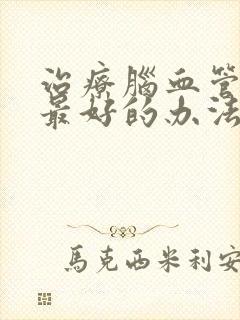 治療腦血管
最好的办法
馬克西米利安